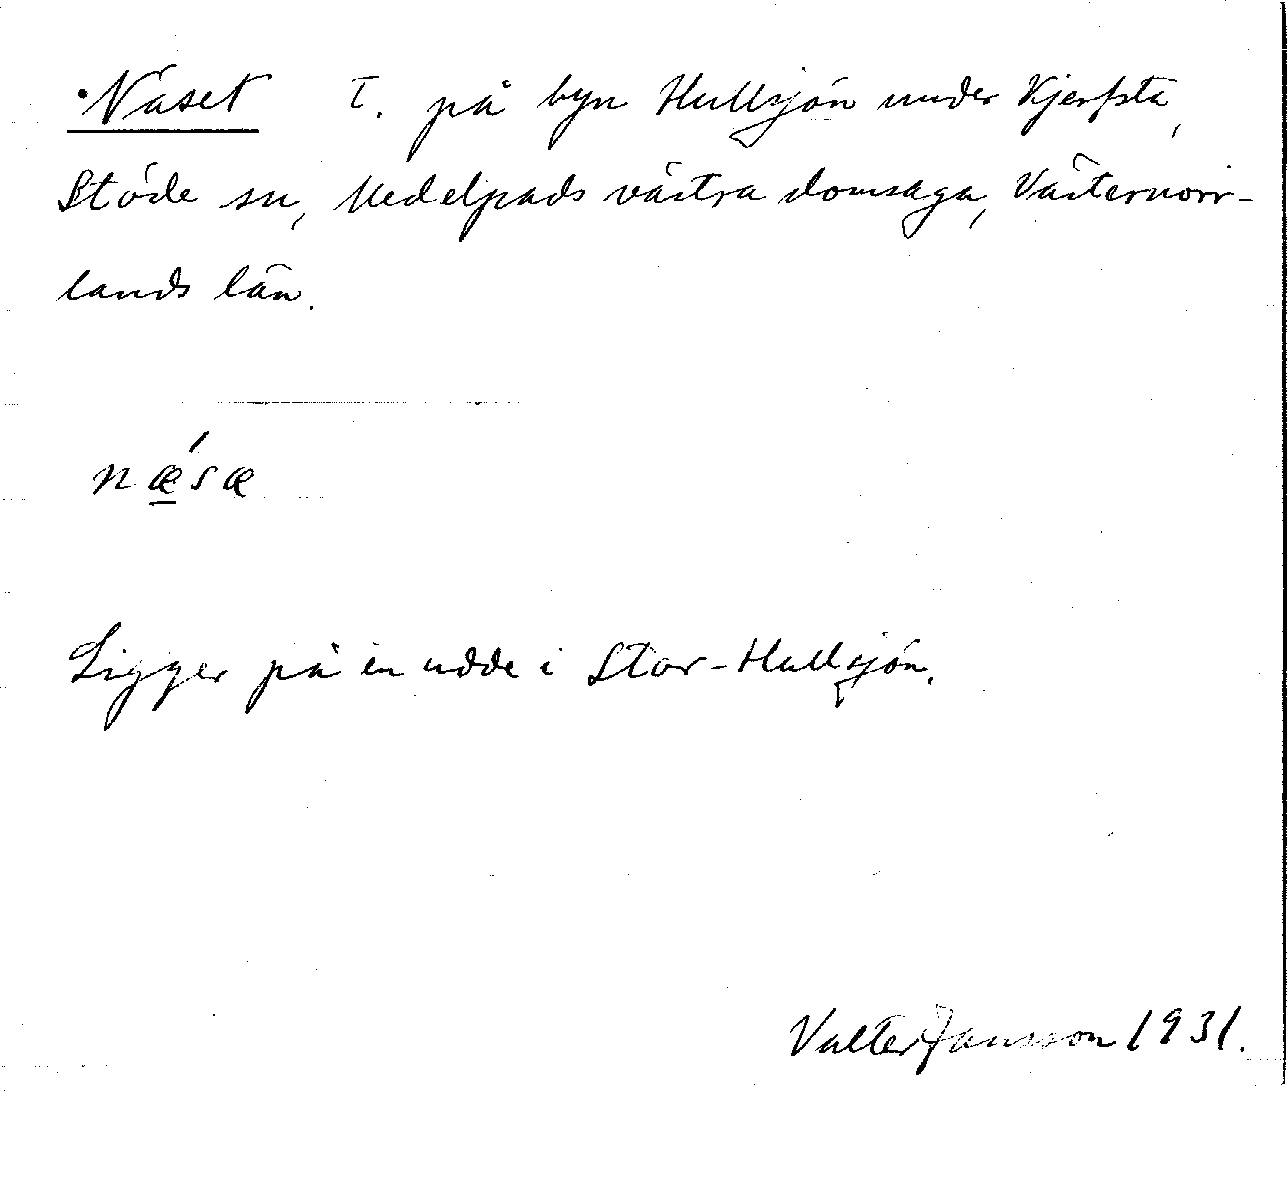 ·Näset T. på byn Hullsjön under Kjerfsta,
Stöde sn, Medelpads västra domsaga, Västernorr-
lands län.
nǽ̲sæ
Ligger på en udde i Stor-Hullsjön.
Valter Jansson 1931.